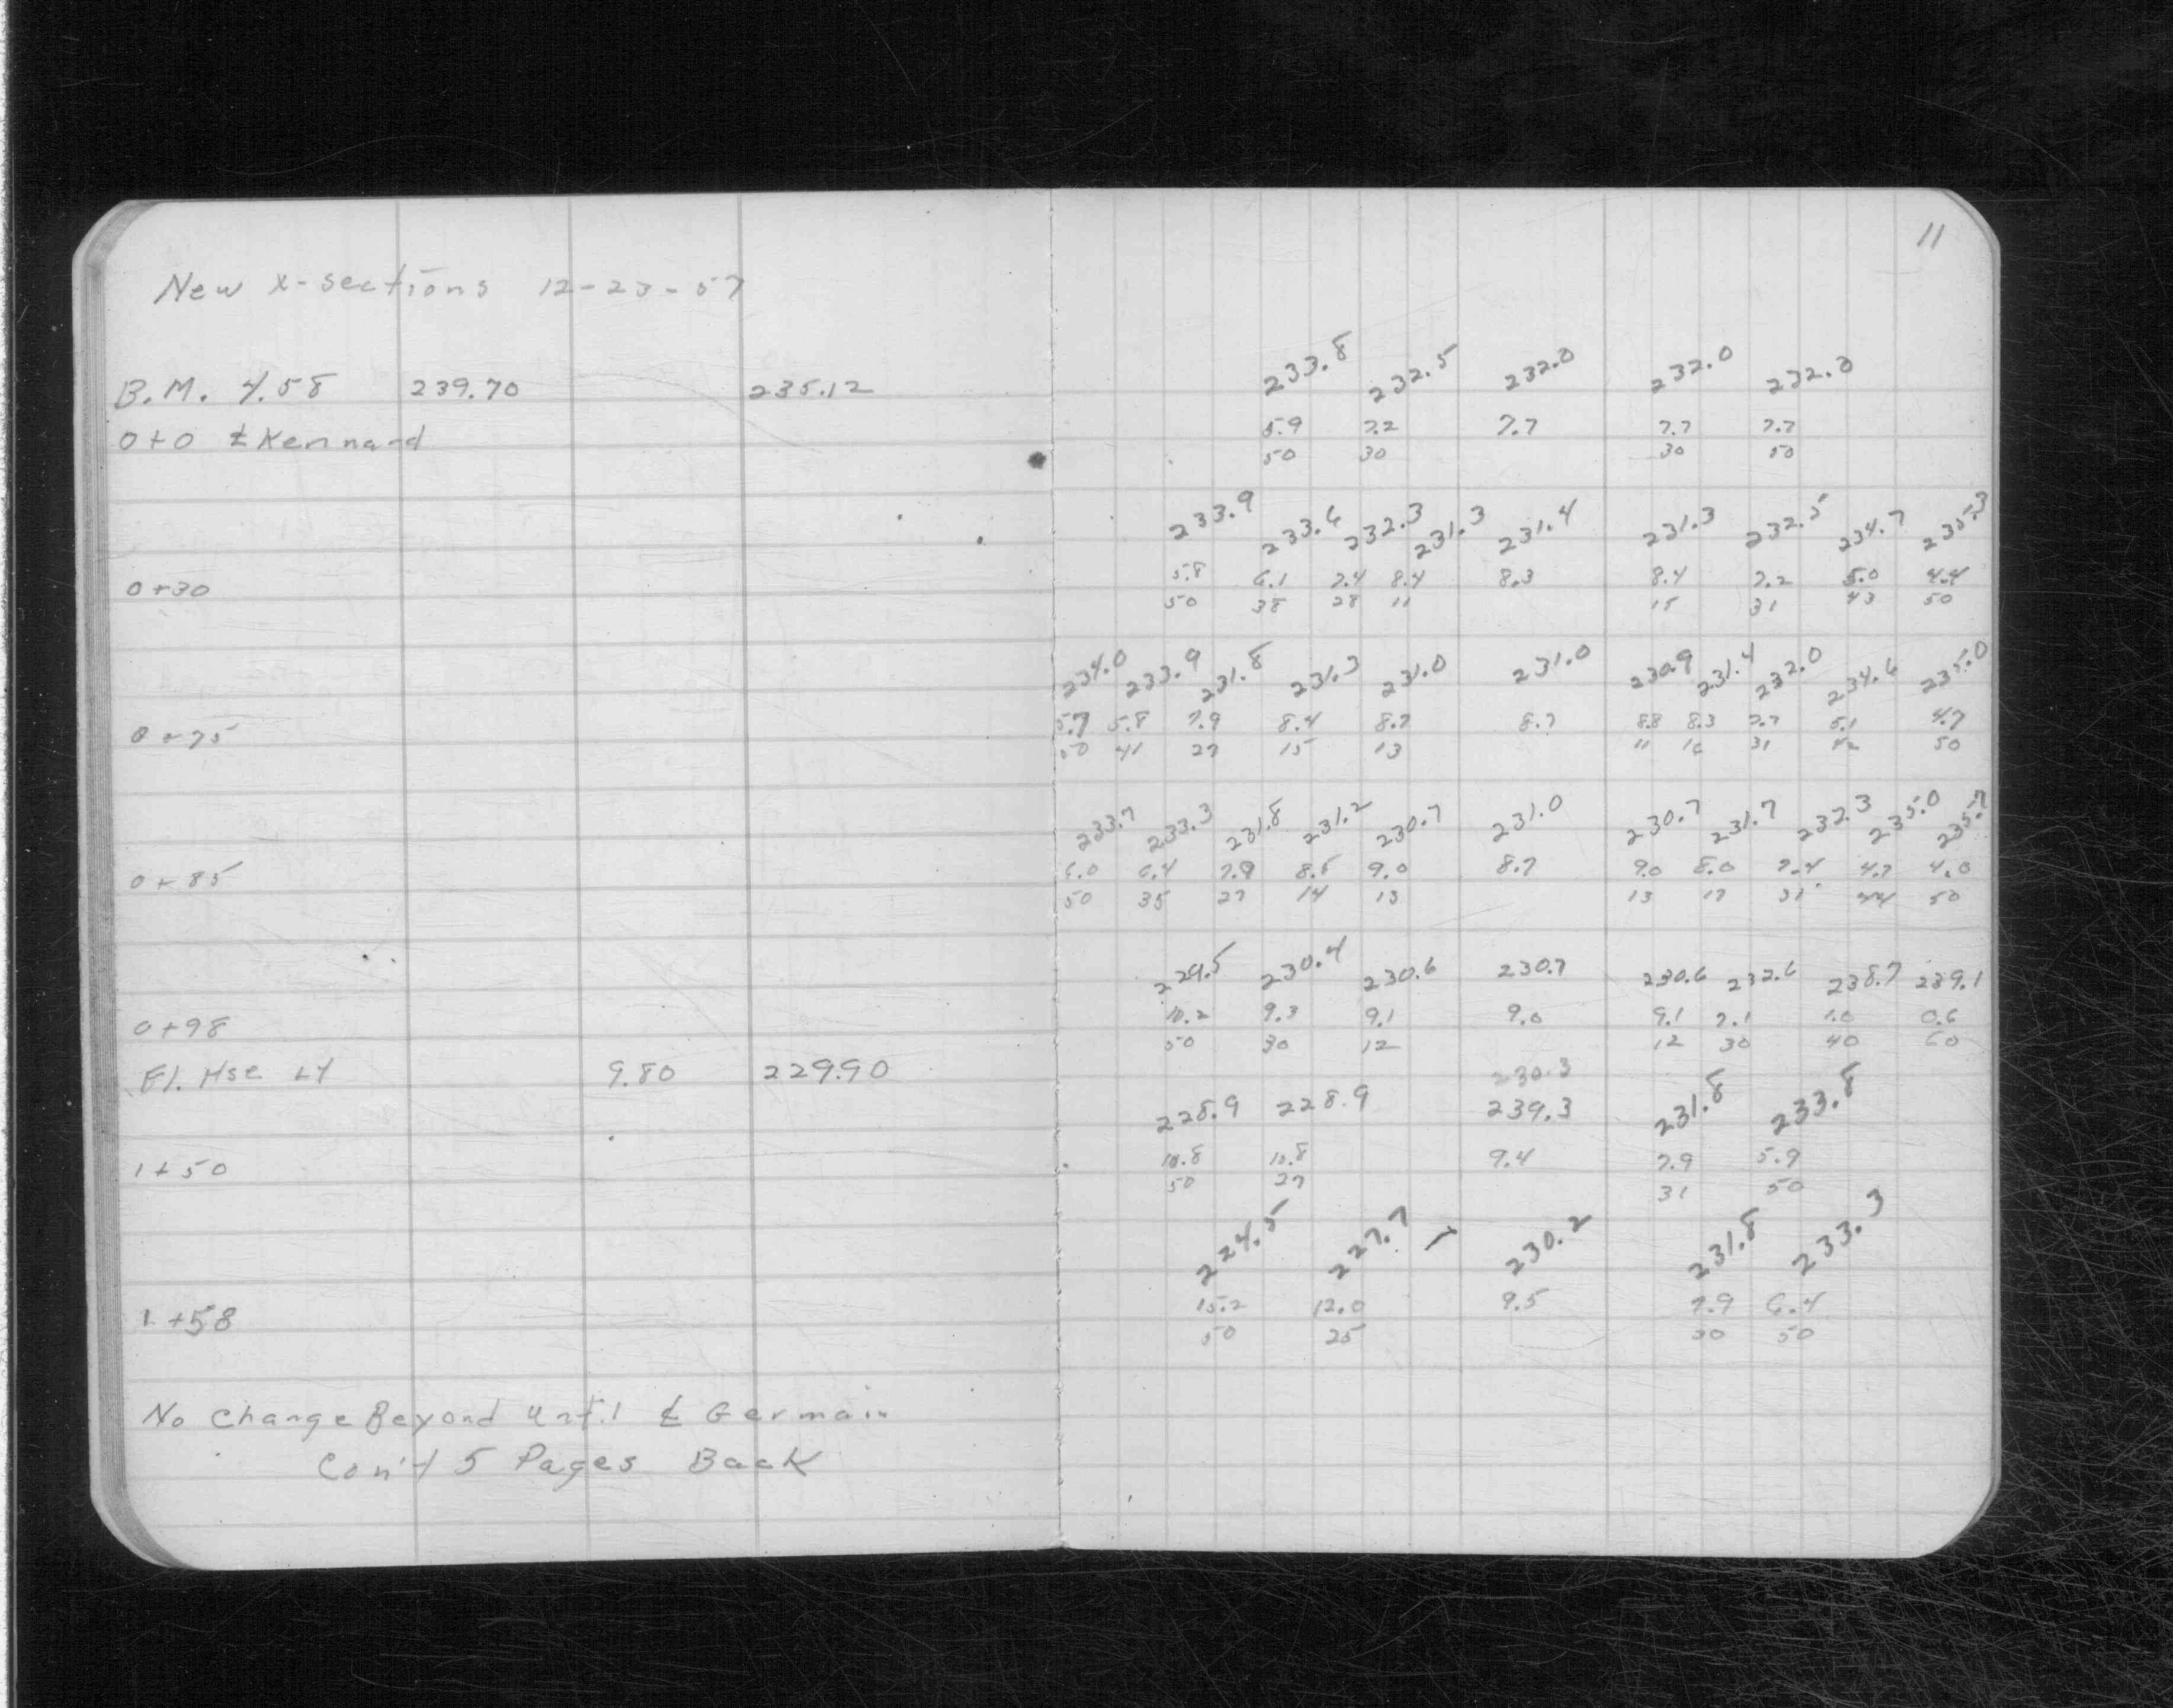 11
New x-sections 12-23-57
233.8 232.5 232.0 232.0 232.0
B.M. 4.58 239.70 235.12
5.9 7.2 7.7 7.7 7.7
0+0 ⅊ Kennard
50 30 30 50
233.9 233.6 232.3 231.3 231.4 231.3 232.5 234.7 235.3
5.8 6.1 7.4 8.4 8.3 8.4 7.2 5.0 4.4
0+30
50 38 28 11 15 31 43 50
234.0 233.9 231.8 231.3 231.0 231.0 230.9 231.4 232.0 234.6 235.0
5.7 5.8 7.9 8.4 8.7 8.7 8.8 8.3 7.7 5.1 4.7
0+75
50 41 27 15 13 11 16 31 42 50
233.7 233.3 231.8 231.2 230.7 231.0 230.7 231.7 232.3 235.0 235.7
6.0 6.4 7.9 8.5 9.0 8.7 9.0 8.0 7.4 4.7 4.0
0+85
50 35 27 14 13 13 17 31 44 50
229.5 230.4 230.6 230.7 230.6 232.6 238.7 239.1
10.2 9.3 9.1 9.0 9.1 7.1 1.0 0.6
0+98
50 30 12 12 30 40 60
Fl. Hse L4 9.80 229.90
230.3
228.9 228.9 239.3 231.8 233.8
10.8 10.8 9.4 7.9 5.9
1+50
50 27 31 50
224.5 227.7 230.2 231.8 233.3
15.2 12.0 9.5 7.9 6.4
1+58
50 25 30 50
No Change Beyond Until ⅊ Germain
Con't 5 Pages Back